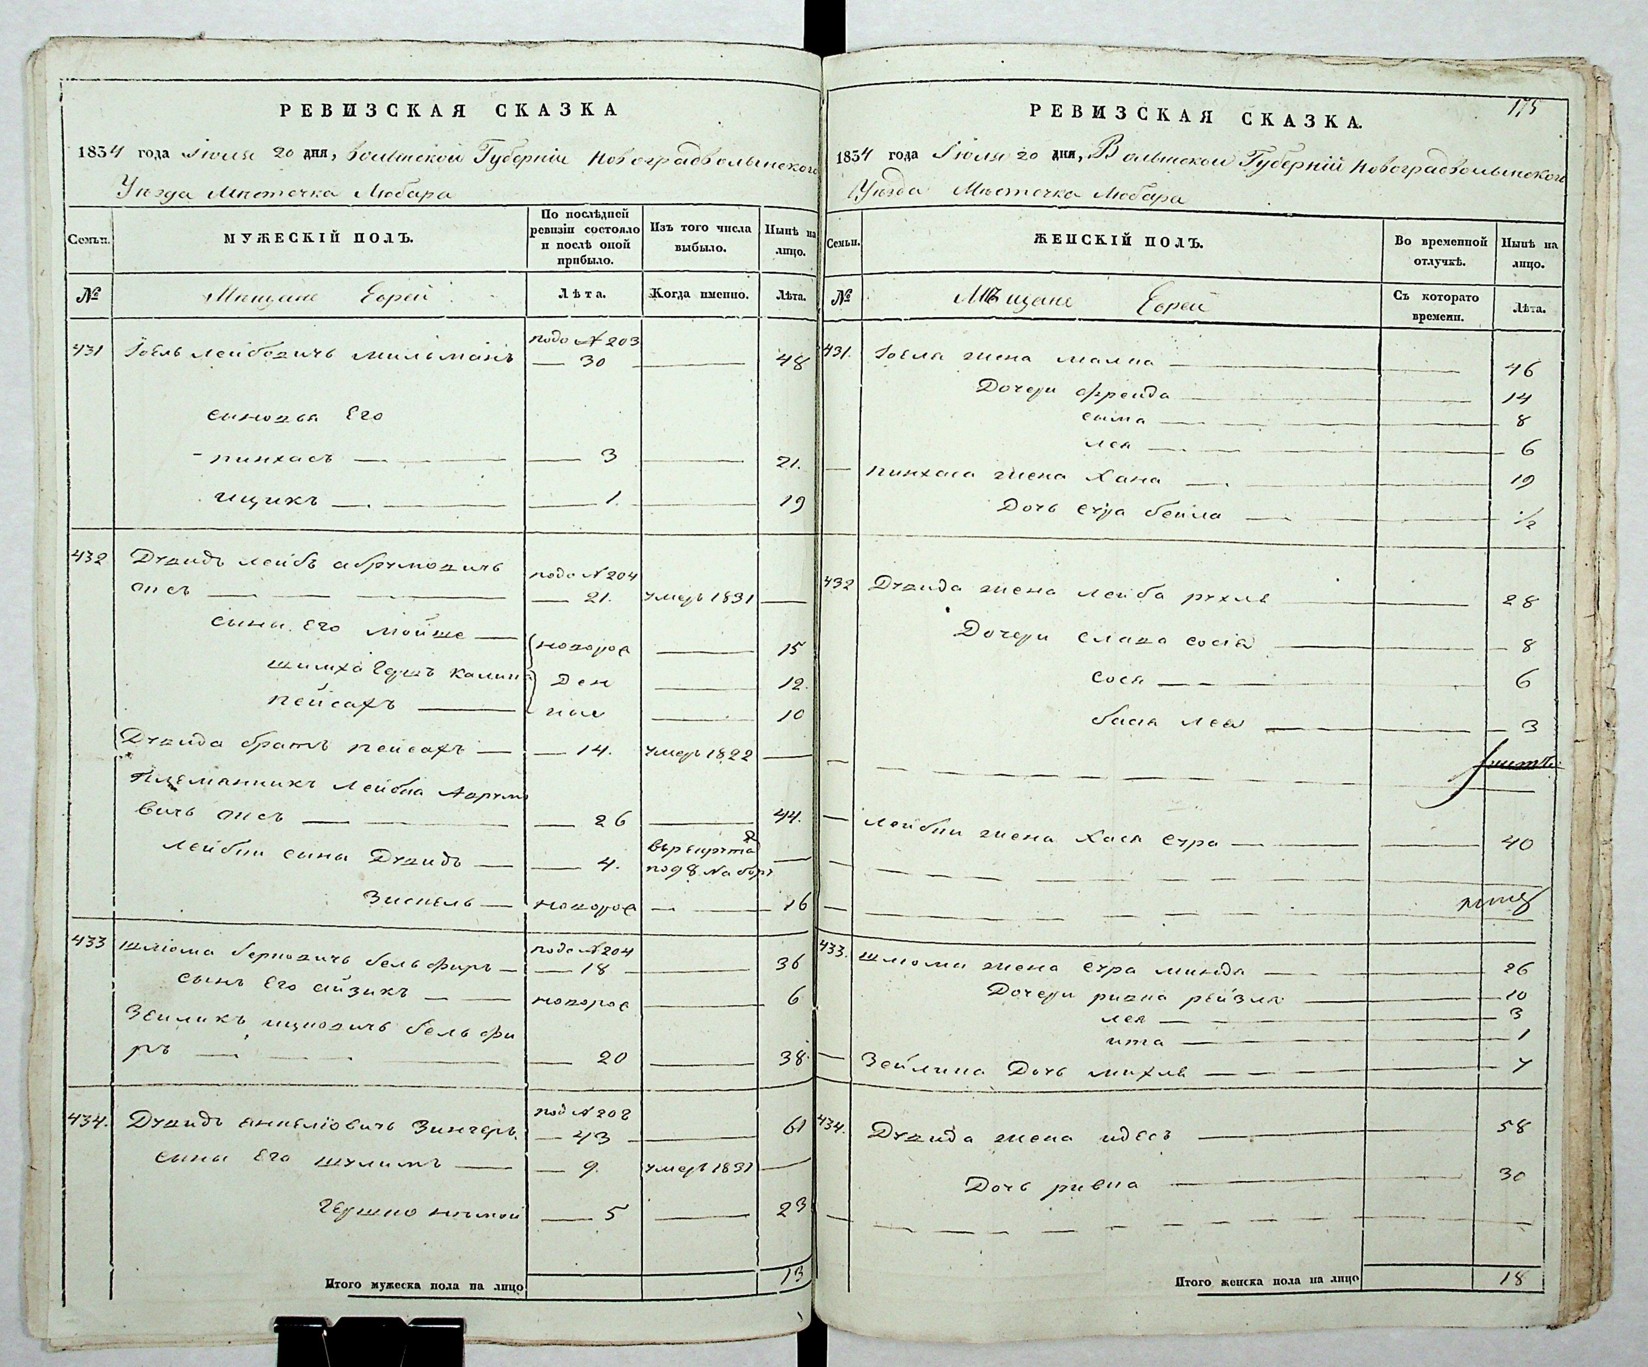 РЕВИЗСКАЯ СКАЗКА
1834 года Іюля 20 дня, Волынской Губерніи Новоградволынского
Уѣзда Мѣстечка Любара
Семьи.
МУЖЕСКІЙ ПОЛЪ.
По послѣдней
ревизіи состояло
и послѣ оной
прибыло.
Изъ того числа
выбыло.
Нынѣ на
лицо.
№
Мещане Евреи
Лѣта.
Когда именно.
Лѣта.
подъ № 203
431 Іоель лейбовичъ мильманъ 30 48
сыновья Его
пинхасъ 3 21.
ицикъ 1 19
432 Дувидъ лейбъ абрумовичъ
подъ № 204
21. умеръ 1831
сыны Его мойше новорож 15
шимха Гершъ ден 12
пейсахъ ные 10
Дувида братъ пейсахъ 14. умеръ 1822
племянникъ лейбиш Аврумо
вичъ 26 44.
лейбиш сыны Дувидъ 4.
Зиспель новорож 16
433 шліома берковичъ бельфиръ
подъ № 204
18 36
сынъ Его айзикъ новорож 6
Зейликъ ицковичъ бельфи
ръ 20 38
под № 208
434. Дувидъ Зингеръ 43 61
сыны Его шулимъ 9. умеръ 1831
Гершко немой 5 23
Итого мужеска пола на лицо 13
175
РЕВИЗСКАЯ СКАЗКА.
1834 года Іюля 20 дня, Волынской Губерній Новоградволынского
Уѣзда Мѣстечка Любара
Семьи.
ЖЕНСКІЙ ПОЛЪ.
Во временной
отлучкѣ.
Нынѣ на
лицо.
№
Мѣщане Евреи
Съ которато
времени.
Лѣта.
431. Іоела жена малка 46
Дочери фрейда 14
сима 8
лея 6
пинхаса жена Хана 19
Дочь сура бейла 1/2
432 Дувида жена лейба рухля 28
Дочери слава сосія 8
сося 6
бася лея 3
лейбиш жена Хася сура 40
433. шліоми жена сура минда 26
Дочери ривка рейзля 10
лея 3
ита 1
Зейлика Дочь михля 7
434. Дувида жена идесъ 58
Дочь ривка 30
Итого женска пола на лицо 18